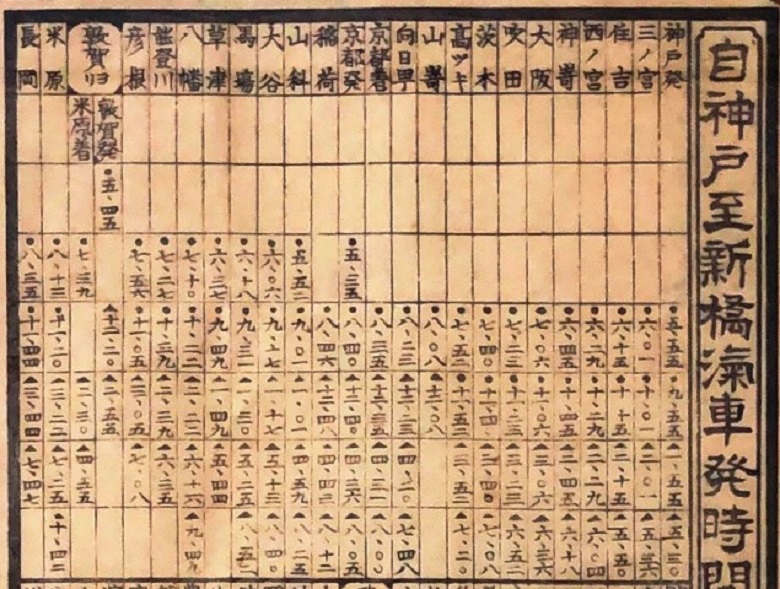 自神戸至新橋滊車発時間
神戸発 ●五、五五 ●九、五五 ▲一、五五 ▲五、三〇
三ノ宮 ●六、〇一 ●十、〇一 ▲二、〇一 ▲五、三六
住吉 ●六、十五 ●十、十五 ▲二、十五 ▲五、五〇
西ノ宮 ●六、二九 ●十、二九 ▲二、二九 ▲六、〇四
神嵜 ●六、四五 ●十、四五 ▲二、四五 ▲六、十八
大阪 ●七、〇六 ●十一、〇六 ▲三、〇六 ▲六、三六
吹田 ●七、二三 ●十一、二三 ▲三、二三 ▲六、五二
茨木 ●七、四〇 ●十一、四〇 ▲三、四〇 ▲七、〇八
高ツキ ●七、五二 ●十一、五二 ▲三、五二 ▲七、二〇
山嵜 ●八、〇八 ▲十二、〇八
向日町 ●八、二三 ▲十二、二三 ▲四、二〇 ▲七、四八
京都着 ●八、三五 ▲十二、三五 ▲四、三一 ▲八、〇〇
京都発 ●五、三五 ●八、四〇 ▲十二、四〇 ▲四、三六 ▲八、〇五
稲荷 ●八、四六 ▲十二、四八 ▲四、四三 ▲八、十二
山科 ●五、五二 ●九、〇一 ▲一、〇一 ▲四、五九 ▲八、二五
大谷 ●六、〇六 ●九、十七 ▲一、十七 ▲五、十三 ▲八、四〇
馬場 ●六、十八 ●九、三一 ▲一、三〇 ▲五、二五 ▲八、五二
草津 ●六、三七 ●九、四九 ▲一、四九 ▲五、四四
八幡 ●七、一〇 ●十、二二 ▲二、二二 ▲六、十六 ▲九、四九
能登川 ●七、二七 ●十、三九 ▲二、三九 ▲六、三五
彦根 ●七、五六 ●十一、〇五 ▲三、〇五 ▲七、〇八
敦賀ヨリ
敦賀発 ●五、四五 ▲十二、二〇 ▲二、五五
米原着 ●七、三九 ▲二、三〇 ▲四、五五
米原 ●八、十三 ●十一、二〇 ▲三、二二 ▲七、二五 ▲十、四二
長岡 ●八、三五 ●十一、四四 ▲三、四四 ▲七、四七